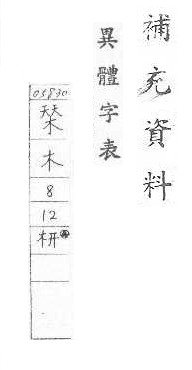 補充資料
異體字表
05830
栞
木
8
12
栞